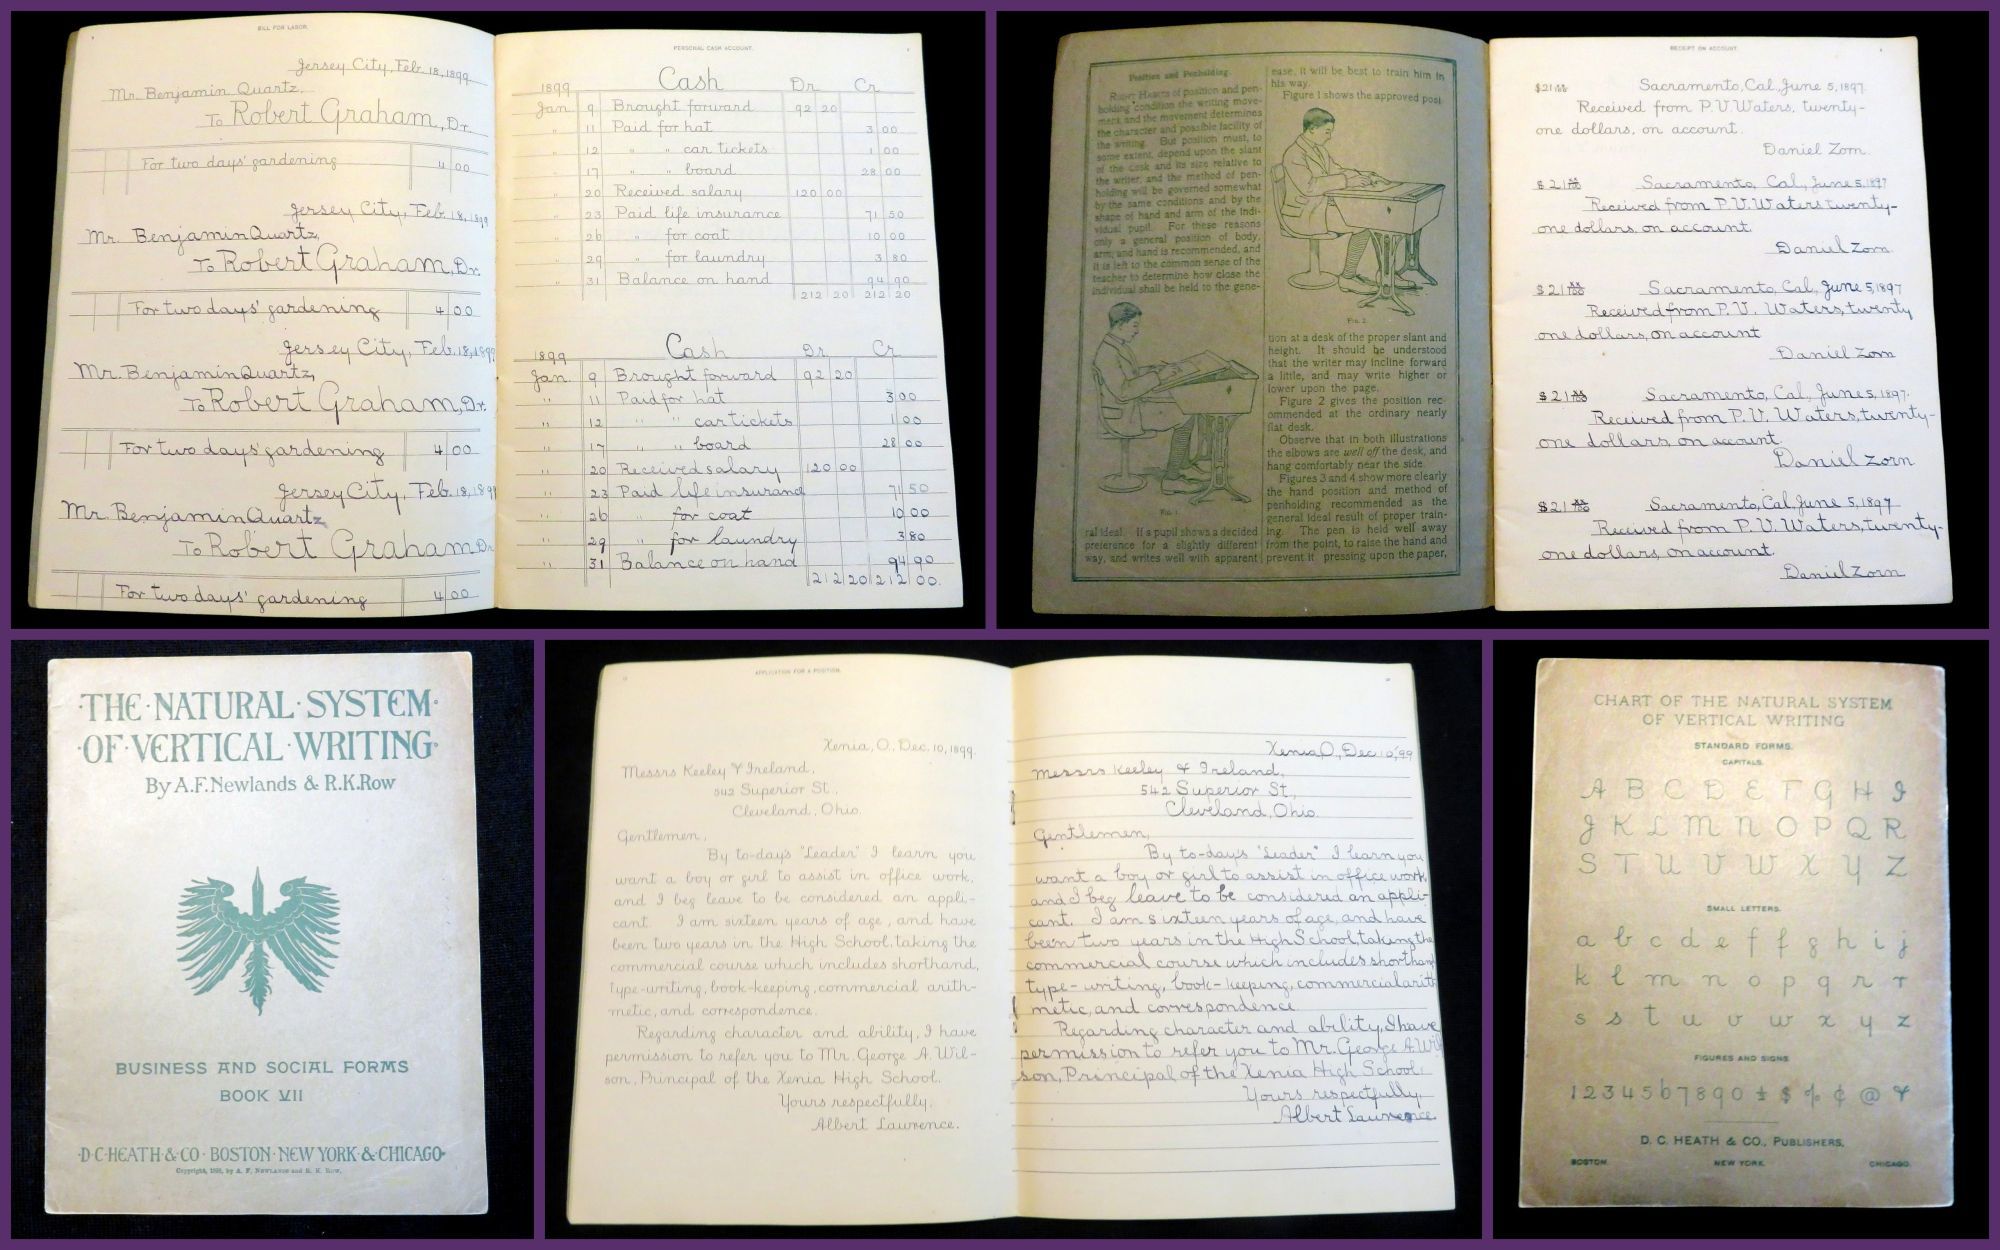 BILL FOR LABOR.
Jersey City, Feb. 18, 1899.
Mr. Benjamin Quartz,
To Robert Graham, Dr.
For two days' gardening 4 00
Jersey City, Feb. 18, 1899
Mr. Benjamin Quartz,
To Robert Graham, Dr.
For two days' gardening 4 00
Jersey City, Feb. 18, 1899
Mr. Benjamin Quartz,
To Robert Graham, Dr.
For two days' gardening 4 00
Jersey City, Feb. 18, 189
Mr. Benjamin Quartz
To Robert Graham Dr.
For two days' gardening 4 00
PERSONAL CASH ACCOUNT.
1899 Cash Dr. Cr.
Jan. 9 Brought forward 92 20
" 11 Paid for hat 3 00
" 12 " " car tickets 1 00
" 17 " " board 28 00
" 20 Received salary 120 00
" 23 Paid life insurance 71 50
" 26 " for coat 10 00
" 29 " for laundry 3 80
" 31 Balance on hand 94 90
212 20 212 20
1899 Cash Dr. Cr.
Jan. 9 Brought forward 92 20
" 11 Paid for hat 3 00
" 12 " " car tickets 1 00
" 17 " " board 28 00
" 20 Received salary 120 00
" 23 Paid life insurance 71 50
" 26 " for coat 10 00
" 29 " for laundry 3 80
" 31 Balance on hand 94 90
212 20 212 00.
Position and Penholding.
RIGHT HABITS of position and pen-
holding condition the writing move-
ment and the movement determines
the character and possible facility of
the writing. But position must, to
some extent, depend upon the slant
of the desk and its size relative to
the writer, and the method of pen-
holding will be governed somewhat
by the same conditions and by the
shape of hand and arm of the indi-
vidual pupil. For these reasons
only a general position of body,
arm, and hand is recommended, and
it is left to the common sense of the
teacher to determine how close the
individual shall be held to the gene-
FIG. 1.
ral ideal. If a pupil shows a decided
preference for a slightly different
way, and writes well with apparent
ease, it will be best to train him in
his way.
Figure 1 shows the approved posi-
FIG. 2.
tion at a desk of the proper slant and
height. It should be understood
that the writer may incline forward
a little, and may write higher or
lower upon the page.
Figure 2 gives the position rec-
ommended at the ordinary nearly
flat desk.
Observe that in both illustrations
the elbows are well off the desk, and
hang comfortably near the side.
Figures 3 and 4 show more clearly
the hand position and method of
penholding recommended as the
general ideal result of proper train-
ing. The pen is held well away
from the point, to raise the hand and
prevent it pressing upon the paper,
RECEIPT ON ACCOUNT.
$21 xx/100 Sacramento, Cal., June 5, 1897.
Received from P. V. Waters, twenty-
one dollars, on account.
Daniel Zorn.
$21 xx/100 Sacramento, Cal., June 5, 1897
Received from P. V. Waters twenty-
one dollars, on account.
Daniel Zorn.
$21 xx/100 Sacramento, Cal., June 5, 1897
Received from P. V. Waters, twenty
one dollars, on account
Daniel Zorn
$21 xx/100 Sacramento, Cal., June 5, 1897.
Received from P. V. Waters, twenty-
one dollars, on account.
Daniel Zorn
$21 xx/100 Sacramento, Cal. June 5, 1897
Received from P. V. Waters, twenty-
one dollars, on account.
Daniel Zorn
·THE·NATURAL·SYSTEM·
·OF·VERTICAL·WRITING·
By A.F.Newlands & R.K.Row
BUSINESS AND SOCIAL FORMS
BOOK VII
·D·C·HEATH·&·CO·BOSTON·NEW YORK·&·CHICAGO·
Copyright, by A. F. NEWLANDS and R. K. ROW.
APPLICATION FOR A POSITION.
Xenia, O., Dec. 10, 1899.
Messrs Keeley & Ireland,
542 Superior St.,
Cleveland, Ohio.
Gentlemen,
By to-day's "Leader" I learn you
want a boy or girl to assist in office work,
and I beg leave to be considered an appli-
cant. I am sixteen years of age, and have
been two years in the High School, taking the
commercial course which includes shorthand,
type-writing, book-keeping, commercial arith-
metic, and correspondence.
Regarding character and ability, I have
permission to refer you to Mr. George A. Wil-
son, Principal of the Xenia High School.
Yours respectfully,
Albert Lawrence.
Xenia O., Dec 10, '99
Messrs Keeley & Ireland,
542 Superior St.,
Cleveland, Ohio.
Gentlemen,
By to-day's "Leader" I learn you
want a boy or girl to assist in office work
and I beg leave to be considered an appli-
cant. I am sixteen years of age, and have
been two years in the High School, taking the
commercial course which includes shorthand
type-writing, book-keeping, commercial arith
metic, and correspondence
Regarding character and ability, I have
permission to refer you to Mr. George A. Wil
son, Principal of the Xenia High School.
Yours respectfully,
Albert Lawrence.
CHART OF THE NATURAL SYSTEM
OF VERTICAL WRITING
STANDARD FORMS.
CAPITALS.
A B C D E F G H I
J K L M N O P Q R
S T U V W X Y Z
SMALL LETTERS.
a b c d e f f g h i j
k l m n o p q r r
s s t u v w x y z
FIGURES AND SIGNS
1 2 3 4 5 6 7 8 9 0 ± $ % ¢ @ &
D. C. HEATH & CO., PUBLISHERS,
BOSTON. NEW YORK. CHICAGO.